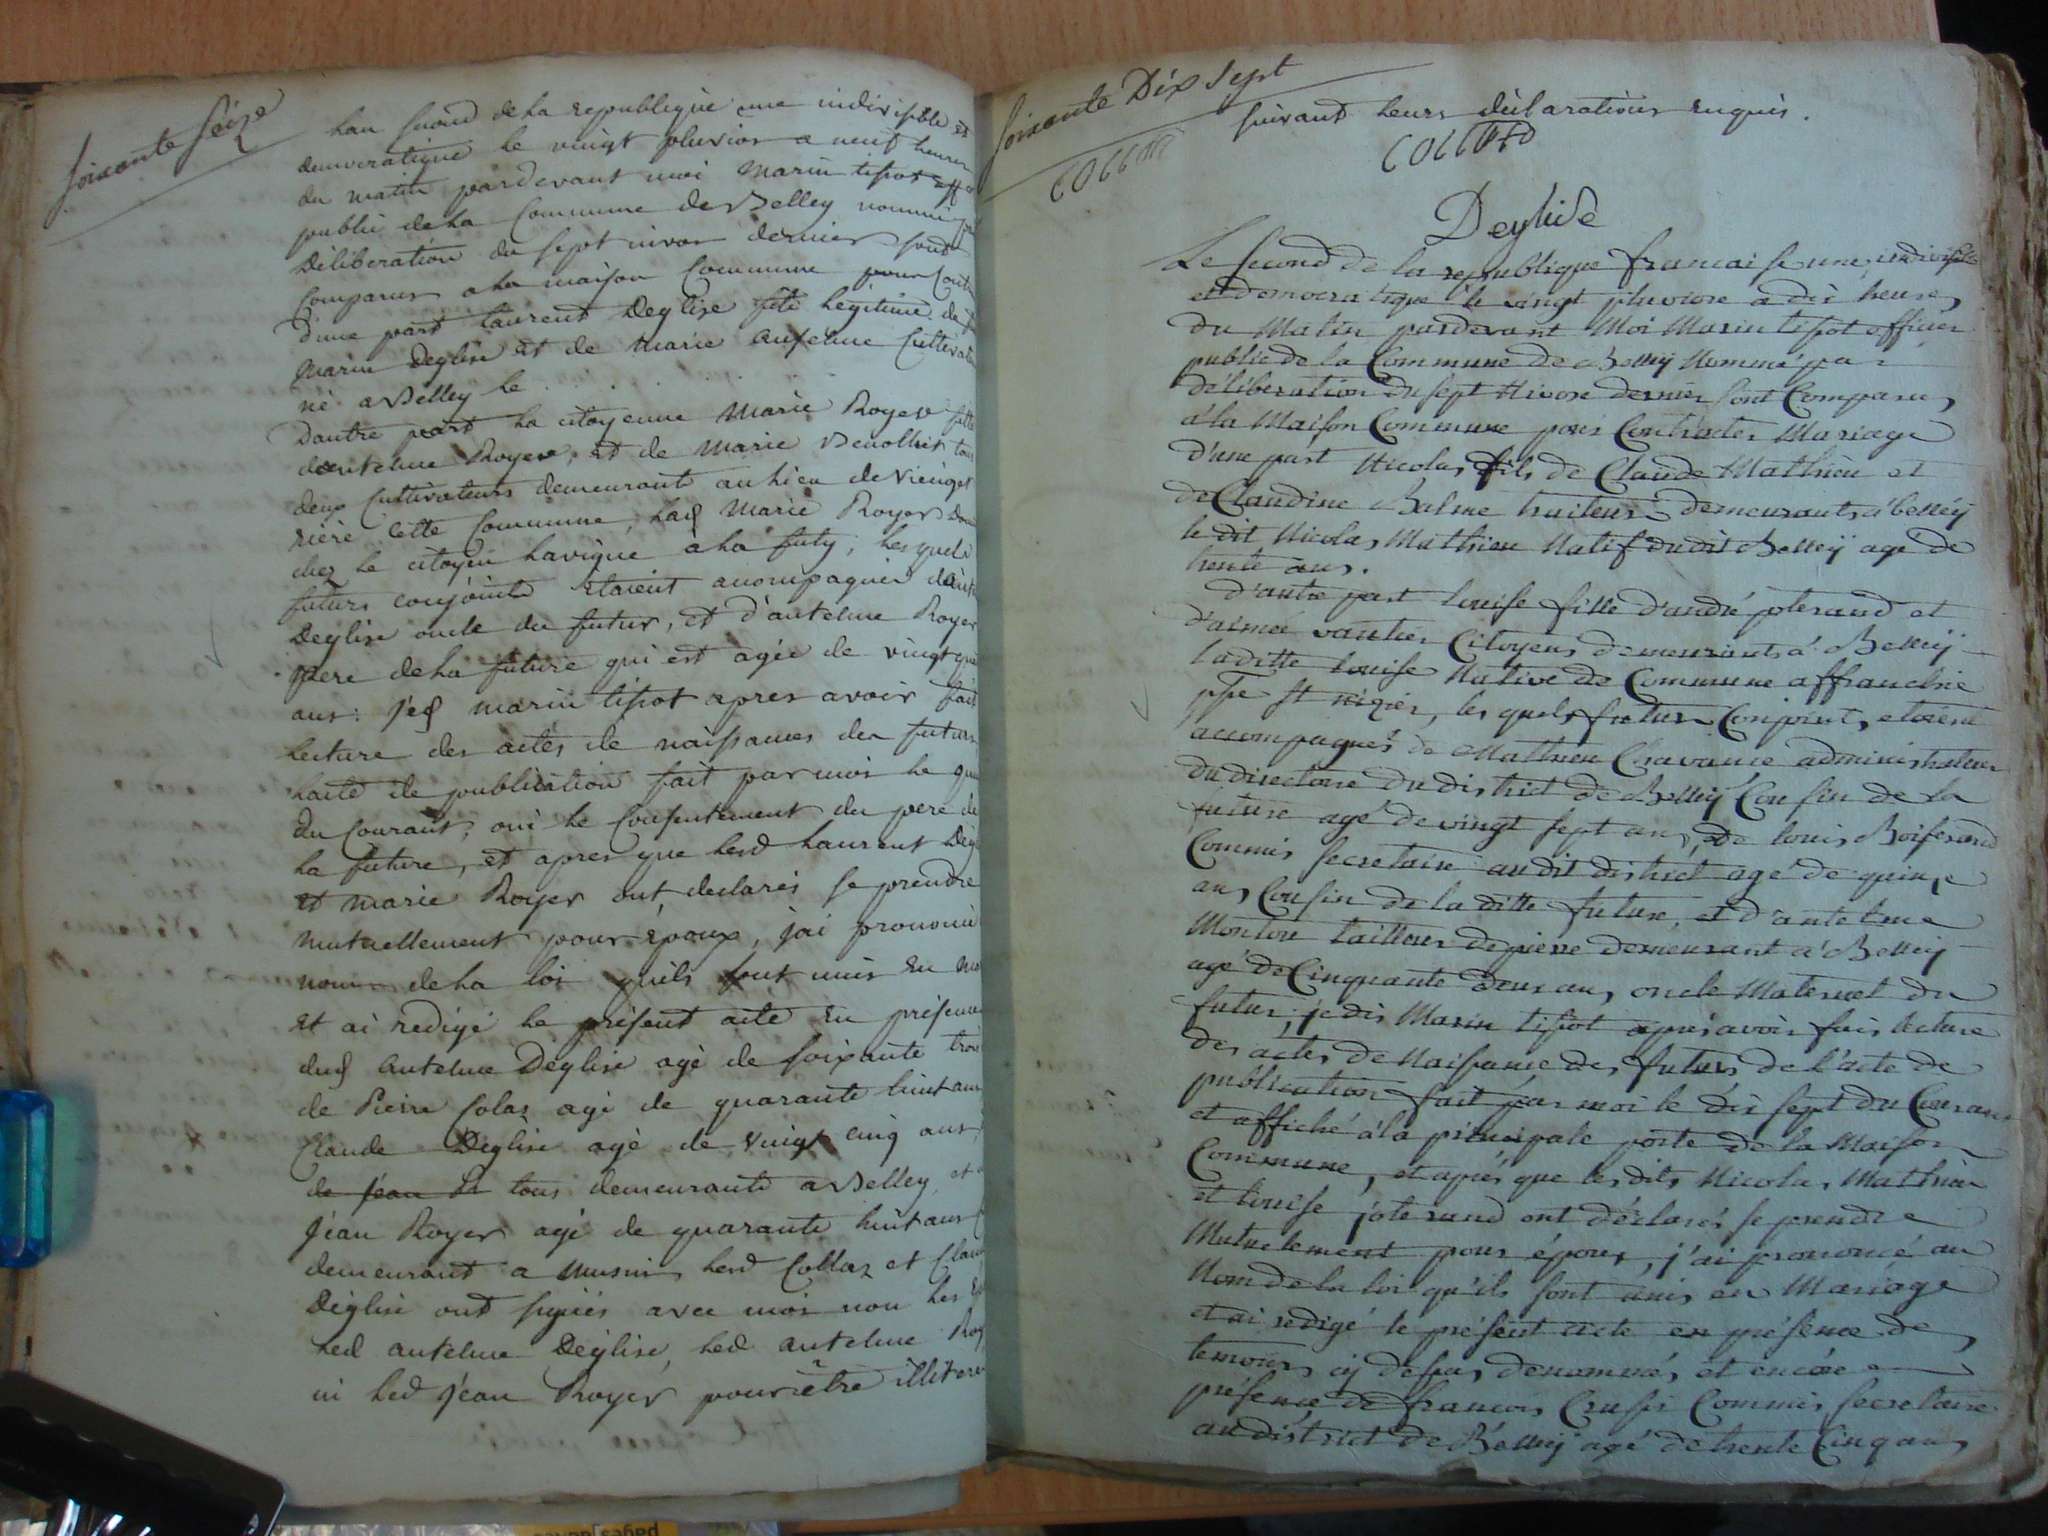 Soixante Seize
Lan second de la republique une indivisible et
democratique le vingt pluvios a neuf heures
du matin pardevant moi Marin tissot off
public de la Commune de Belley nommé par
Déliberation du sept nivos dernier sont
Comparus a la maison Commune pour Contr
d'une part Laurent Deglise fils légitime de f
Marin Deglise et de marie anselme Cultivate
né a Belley le . . . . . .
Dautre part la citoyenne Marie Royer fille
d'antelme Royer, et de Marie tous
deux Cultivateurs demeurant au hieu de
riere Cette Commune, lad Marie Royer dem
chez le citoyen Lavigne à la futy; lesquels
futurs conjoints étaient acompagnés d'ant
Deglise oncle du futur, et d'antelme Royer
pere de la future qui est agée de vingt
ans: jed marin tissot apres avoir fait
lecture des actes de naissances des futurs
lacte de publication fait par moi le
du Courant, oui le Consentement du pere de
la future, et apres que lesd Laurent Deg
et marie Royer ont declarés se prendre
mutuellement pour époux, jai prononcé
nom de la loi quils sont unis en ma
et ai redigé le présent acte en présence
dud antelme Deglise agé de soixante trois
de Pierre Colas agé de quarante huit ans
Claude Deglise agé de vingt cinq ans,
de jean tous demeurants a Belley, et
Jean Royer agé de quarante huit ans
demeurant a Musin, lesd Collaz et Clau
Deglise ont signés avec moi non les
led antelme Deglise, led antelme Roy
ni led jean Royer pour être illiteré
Soixante Dix Sept
suivant leurs declarations enquis.
Deglise
Le second de la republique francaise une, indivisible
et democratique le vingt pluviose a dix heures
du Matin pardevant Moi Marin tissot officier
public de la Commune de Belley Nommé par
déliberation du sept Nivose dernier sont Comparu,
à la Maison Commune pour Contracter Mariage
d'une part Nicolas fils de Claude Mathieu et
de Claudine Balme traiteurs demeurants à belley
le dit Nicolas Mathieu Natif dudit Belley age de
trente ans.
D'autre part louise fille d'andré joterand et
d'aimée vautier Citoyens demeurants à Belley
laditte louise Native de Commune affranchie
psse St nizier, les quels futurs Conjoints, etoient
accompagnés de Mathieu Chavance administrateur
du directoire du district de Belley Cousin de la
future agé de vingt sept ans, de louis Boiserand
Commis secretaire audit district agé de quinze
ans Cousin de la ditte future, et d'antelme
Montou tailleur de pierre demeurant à Belley
agé de Cinquante deux ans, oncle Maternel du
futur, je dis Marin tissot après avoir fais lecture
des actes de Naissance des futurs de l'acte de
publication fait par moi le dix sept du Courant
et affiché à la principale porte de la Maison
Commune, et après que lesdits Nicolas Mathieu
et louise joterand ont déclarés se prendre
Mutuelement pour époux, j'ai prononcé au
Nom de la loi qu'ils sont unis en Mariage
et ai redigé le présent acte en présence de,
temoins cy dessus denommés et encore en
présence de francois Crussi Commis secretaire
au district de Belley agé de trente Cinq ans,